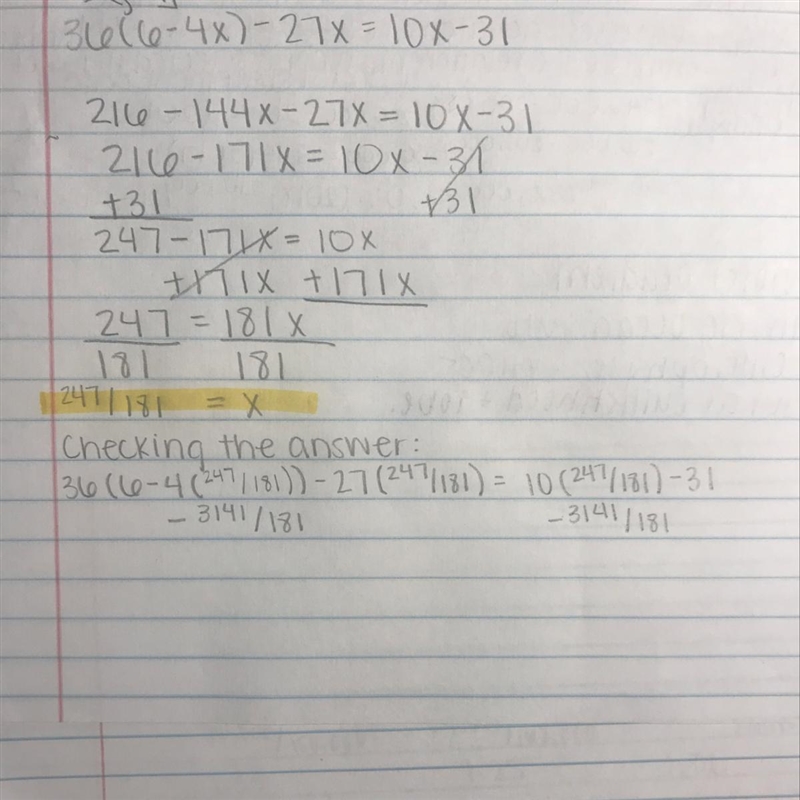 36(6-4x)-27x=10x-31
216-144x-27x=10x-31
216-171x=10x-31
+31 +31
247-171x=10x
+171x +171x
247 = 181x
181 181
247/181 = x
Checking the answer:
36(6-4(247/181))-27(247/181)=10(247/181)-31
-3141/181 -3141/181